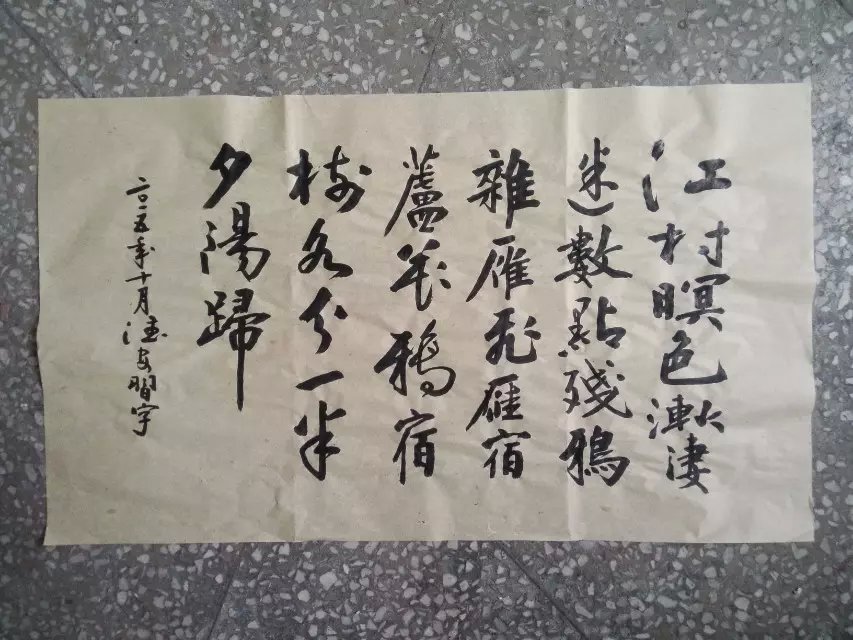 江村暝色漸淒
迷數點殘鴉
雜雁飛雁宿
蘆花鴉宿
樹各分一半
夕陽歸
二〇一五年十月德安習字